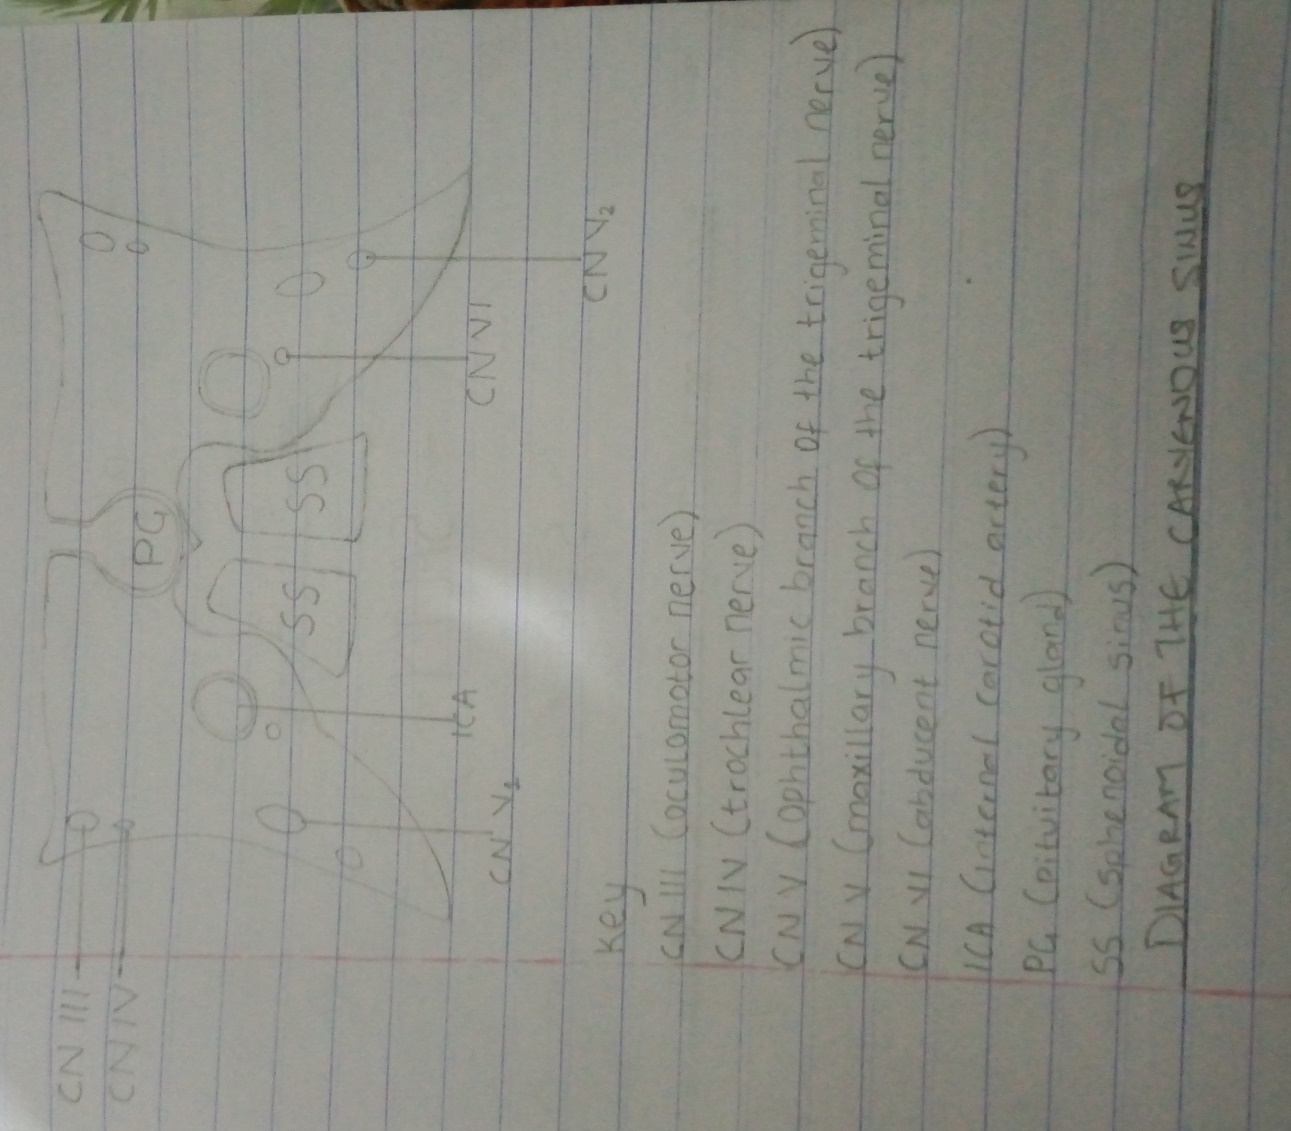 CN III
CN IV
PG
SS SS
ICA
CN VI
CN V₂
CN V₂
Key
CN III (oculomotor nerve)
CN IV (trochlear nerve)
CN V (ophthalmic branch of the trigeminal nerve)
CN V (maxillary branch of the trigeminal nerve)
CN VI (abducent nerve)
ICA (internal carotid artery)
PG (pituitary gland)
SS (sphenoidal sinus)
DIAGRAM OF THE CARVENOUS SINUS